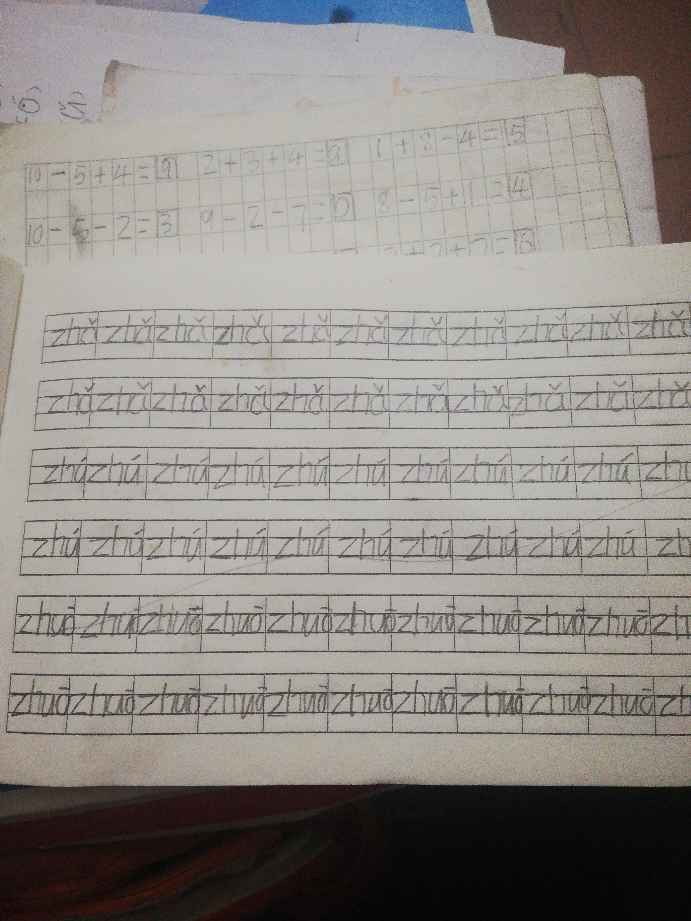 10-5+4=9 2+3+4=9 1+8-4=5
10-5-2=3 9-2-7=0 8-5+1=4
zhǎ zhǎ zhǎ zhǎ zhǎ zhǎ zhǎ zhǎ zhǎ zhǎ zhǎ
zhǎ zhǎ zhǎ zhǎ zhǎ zhǎ zhǎ zhǎ zhǎ zhǎ zhǎ
zhú zhú zhú zhú zhú zhú zhú zhú zhú zhú zhu
zhú zhú zhú zhú zhú zhú zhú zhú zhú zhú zh
zhuō zhuō zhuō zhuō zhuō zhuō zhuō zhuō zhuō zhuō zh
zhuō zhuō zhuō zhuō zhuō zhuō zhuō zhuō zhuō zhuō zh